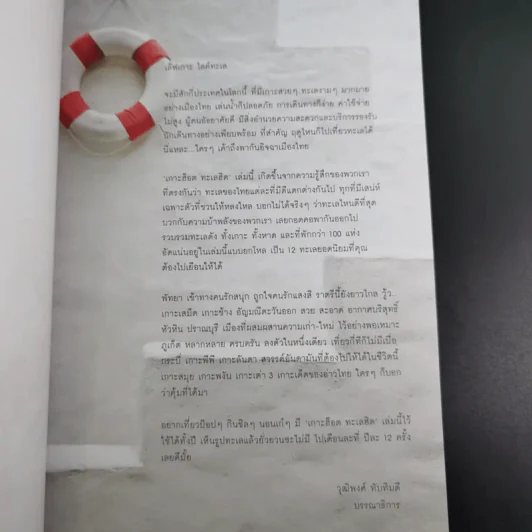 เลิฟเกาะ ไลค์ทะเล
จะมีสักกี่ประเทศในโลกนี้ ที่มีเกาะสวยๆ ทะเลงามๆ มากมาย
อย่างเมืองไทย เล่นน้ำก็ปลอดภัย การเดินทางก็ง่าย ค่าใช้จ่าย
ไม่สูง ผู้คนอัธยาศัยดี มีสิ่งอำนวยความสะดวกและบริการรองรับ
นักเดินทางอย่างเพียบพร้อม ที่สำคัญ ฤดูไหนก็ไปเที่ยวทะเลได้
นี่แหละ...ใครๆ เค้าถึงพากันอิจฉาเมืองไทย
'เกาะฮ็อต ทะเลฮิต' เล่มนี้ เกิดขึ้นจากความรู้สึกของพวกเรา
ที่ตรงกันว่า ทะเลของไทยแต่ละที่มีดีแตกต่างกันไป ทุกที่มีเสน่ห์
เฉพาะตัวที่ชวนให้หลงใหล บอกไม่ได้จริงๆ ว่าทะเลไหนดีที่สุด
บวกกับความบ้าพลังของพวกเรา เลยกอดคอพากันออกไป
รวบรวมทะเลดัง ทั้งเกาะ ทั้งหาด และที่พักกว่า 100 แห่ง
อัดแน่นอยู่ในเล่มนี้แบบยกโหล เป็น 12 ทะเลยอดนิยมที่คุณ
ต้องไปเยือนให้ได้
พัทยา เข้าทางคนรักสนุก ถูกใจคนรักแสงสี ราตรีนี้ยังยาวไกล รู้ว..
เกาะเสม็ด เกาะช้าง อัญมณีตะวันออก สวย สะอาด อากาศบริสุทธิ์
หัวหิน ปราณบุรี เมืองที่ผสมผสานความเก่า-ใหม่ ไว้อย่างพอเหมาะ
ภูเก็ต หลากหลาย ครบครัน ลงตัวในหนึ่งเดียว เที่ยวกี่ทีก็ไม่มีเบื่อ
กระบี่ เกาะพีพี เกาะลันตา สวรรค์อันดามันที่ต้องไปให้ได้ในชีวิตนี้
เกาะสมุย เกาะพงัน เกาะเต่า 3 เกาะเด็ดของอ่าวไทย ใครๆ ก็บอก
ว่าคุ้มที่ได้มา
อยากเที่ยวป็อปๆ กินชิลๆ นอนเก๋ๆ มี 'เกาะฮ็อต ทะเลฮิต' เล่มนี้ไว้
ใช้ได้ทั้งปี เห็นรูปทะเลแล้วยั่วยวนชะไม่มี ไปเดือนละที่ ปีละ 12 ครั้ง
เลยดีมั้ย
วุฒิพงศ์ ทับทิมดี
บรรณาธิการ